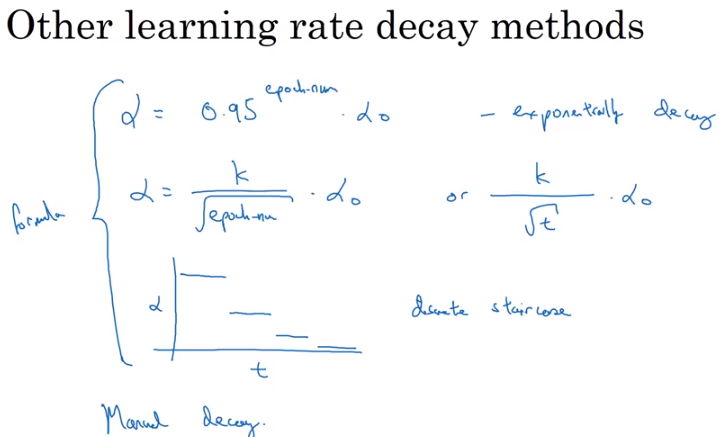 Other learning rate decay methods
α = 0.95^epoch-num · α₀ – exponentially decay
formula
α = k / √epoch-num · α₀ or k / √t · α₀
α
discrete staircase
t
Manual decay.